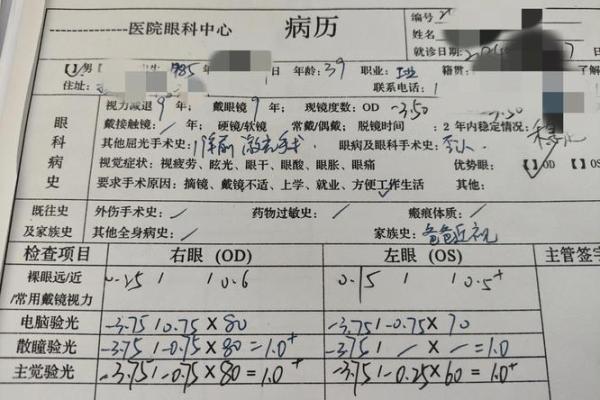 医院眼科中心 病历
编号
姓名
就诊日期:
男 年龄:39 职业: 籍贯:
住址: 联系电话:
视力减退9年; 戴眼镜9年; 现镜度数: OD -3.50 -3.50
戴接触镜/年; 硬镜/软镜 常戴/偶戴; 脱镜时间 : 2年内稳定情况:
其他屈光手术史: 激光手术 眼病及眼科手术史: 否认
视觉症状: 视疲劳、眩光、眼干、眼酸、眼胀、眼痛 优势眼: [√]OD [ ]OS
要求手术原因: 摘镜、戴镜不适、上学、就业、方便工作生活 其他:
眼科病史
既往史及家族史
外伤手术史: / 药物过敏史: / 瘢痕体质: /
其他全身病史: / 家族史: 爸爸近视
检查项目 右眼 (OD) 左眼 (OS) 主管签字
裸眼远/近/常用戴镜视力 0.15 / / 0.6 0.15 / / 0.5+
电脑验光 -3.75/0.75×80 -3.75/-0.75×70
散瞳验光 -3.75/-0.75×80=1.0+ -3.75/ / × / =1.0
主觉验光 -3.75/-0.75×80=1.0+ -3.75/-0.25×60=1.0+